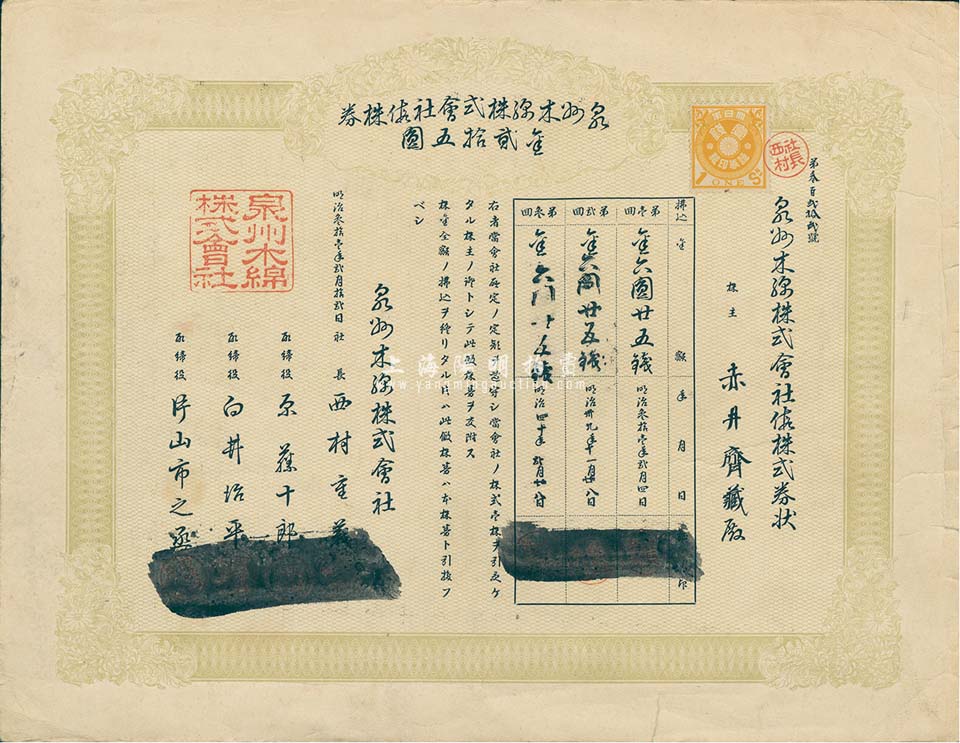 泉州木綿株式會社仮株券
金貳拾五圓
第參百貳拾貳號
社長西村
1 ONE Sn
泉州木綿株式會社仮株式券状
株主 赤井齊藏殿
拂込 金額 年月日 印
第壱回 金六圓廿五銭 明治參拾壱年貳月四日
第貳回 金六圓廿五銭 明治卅九年十一月廿八日
第參回 金六円 明治四十年
右者當會社所定ノ定款ヲ遵守シ當會社ノ株式壱株ヲ引受ケ
タル株主ノ御トシテ此仮株券ヲ交附ス
株金全額ノ拂込ヲ終リタル上ハ此仮株券ハ本株券ト引換フ
ベシ
泉州木綿株式會社
明治參拾壱年貳月拾貳日
社長 西村重
取締役 原藤十郎
取締役 白井治平
取締役 片山市之
泉州木綿
株式會社
上海陽明拍賣
www.yangmingauction.com